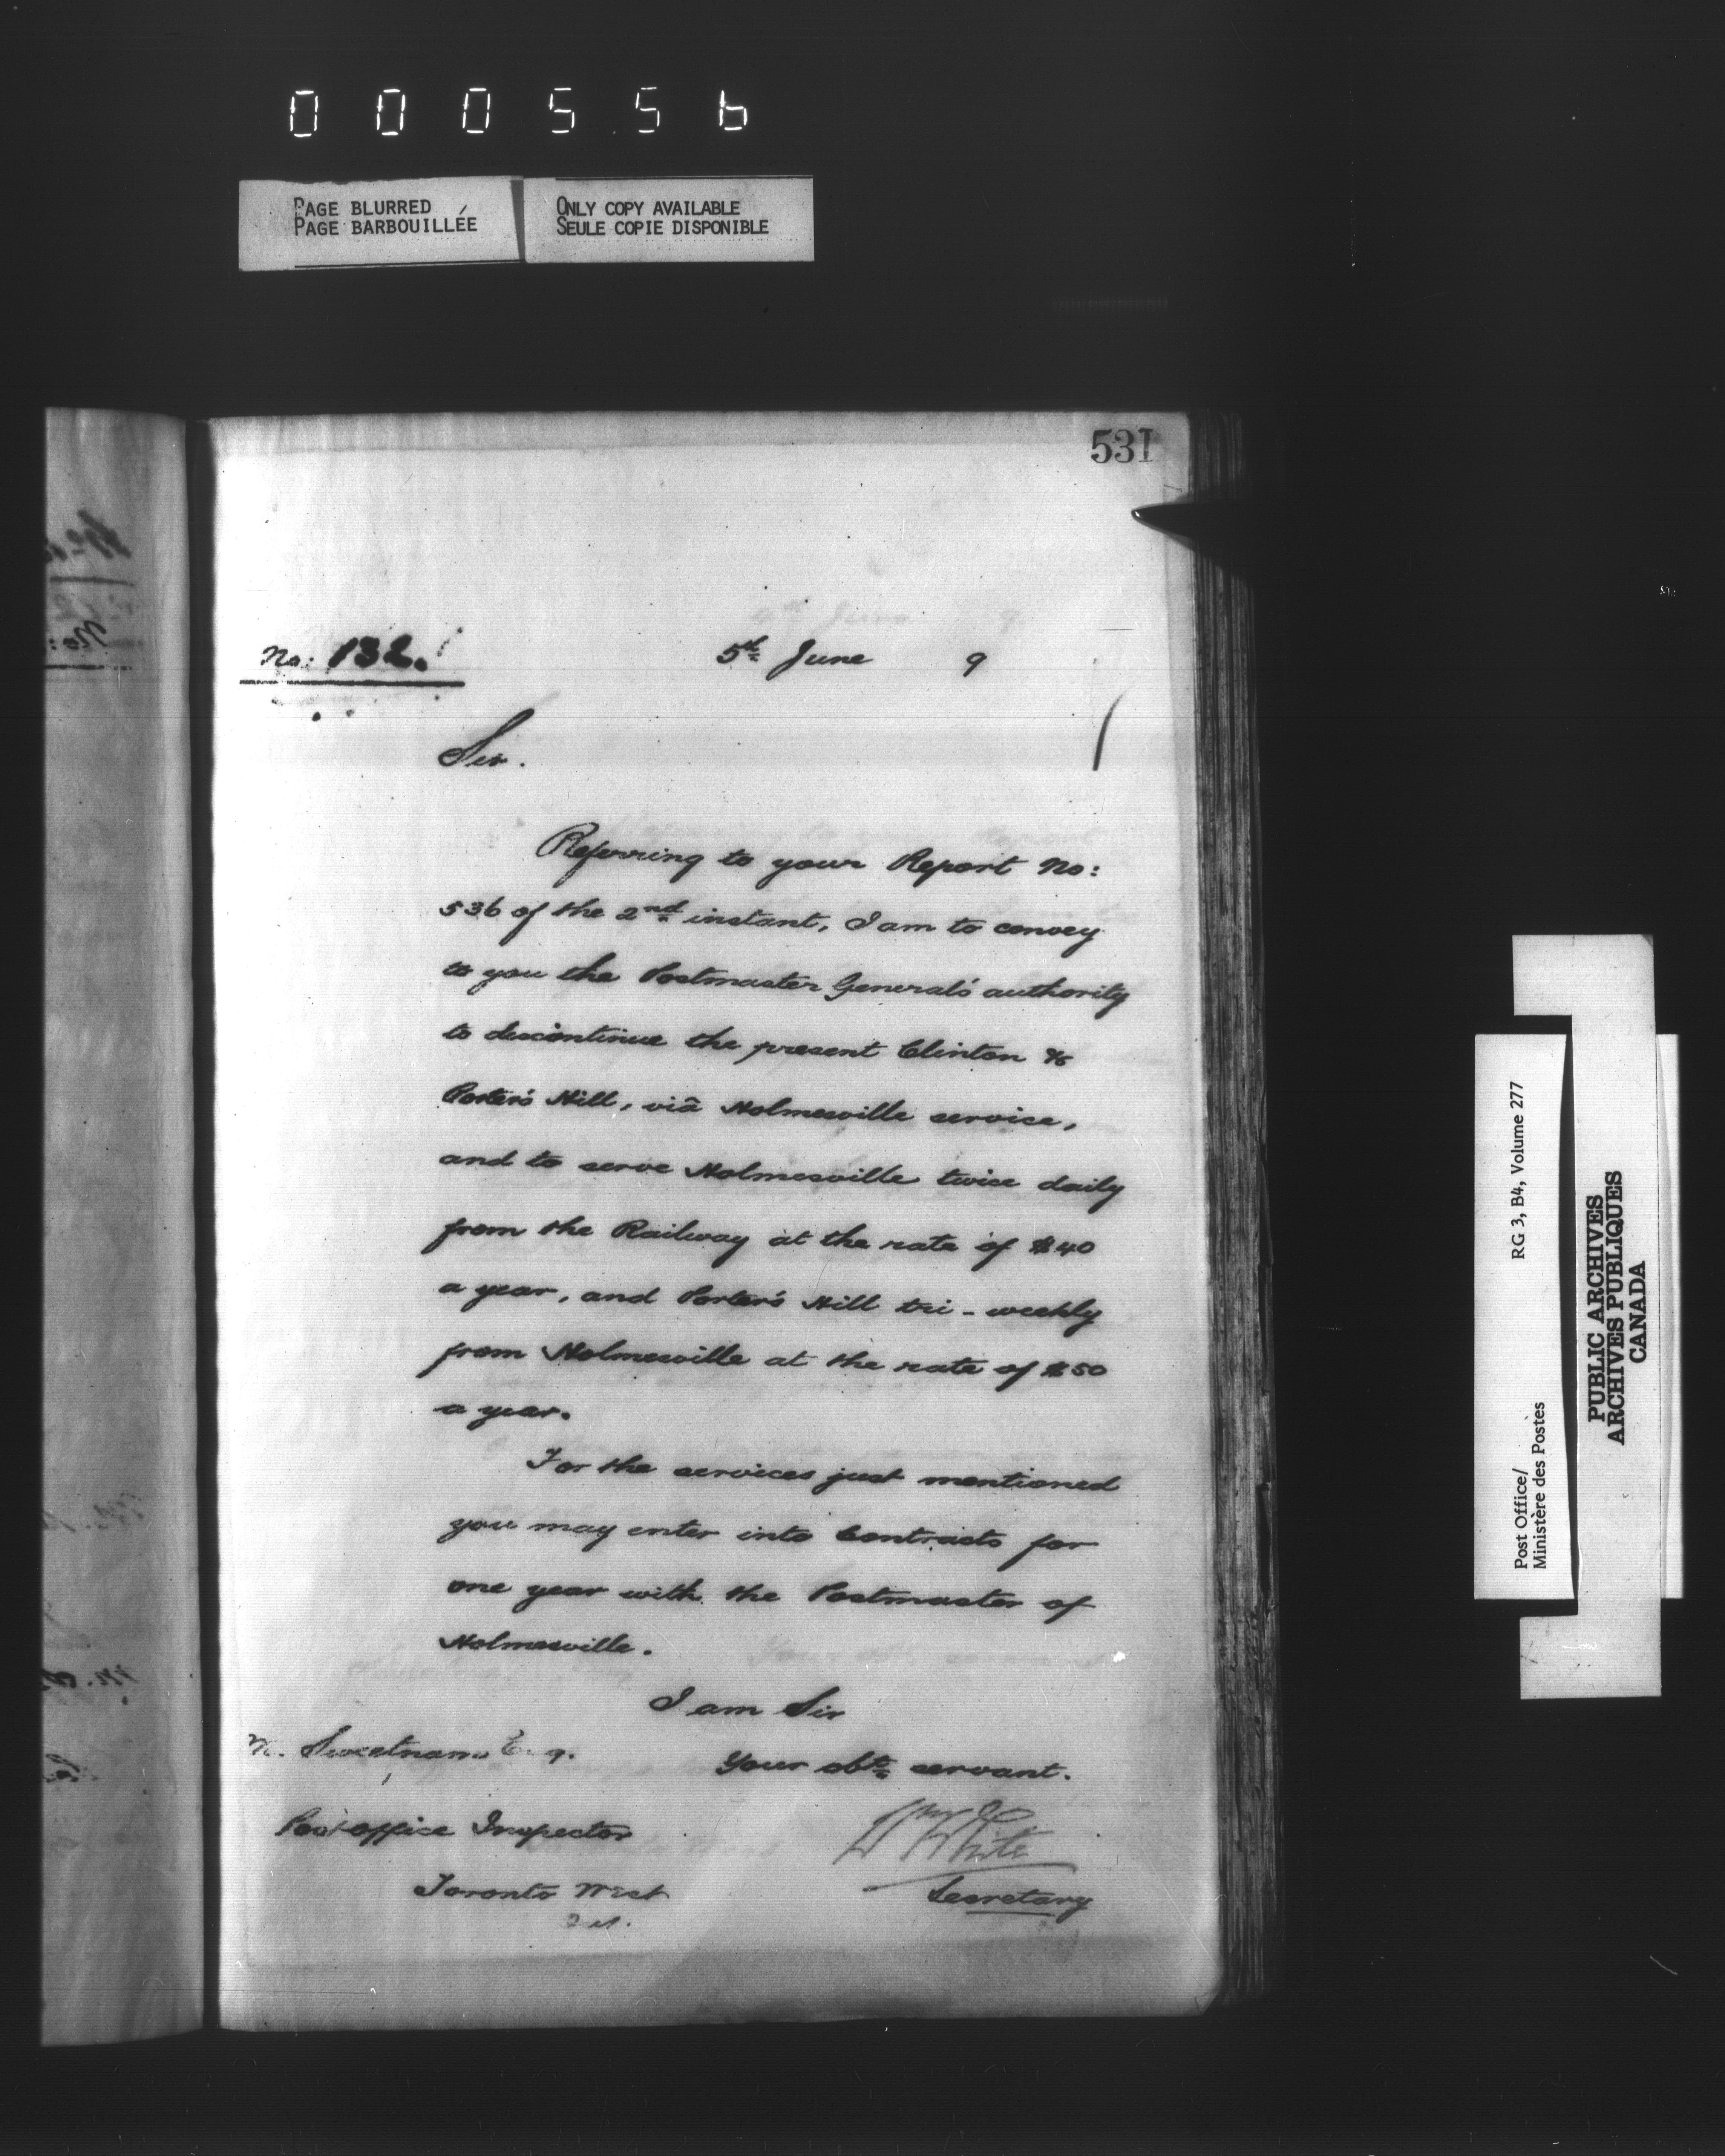 000556
PAGE BLURRED
PAGE BARBOUILLÉE
ONLY COPY AVAILABLE
SEULE COPIE DISPONIBLE
531
No: 132.
5th June 9
Sir.
Referring to your Report No:
536 of the 2nd instant, I am to convey
to you the Postmaster General's authority
to discontinue the present Clinton &
Porter's Hill, viâ Holmesville service,
and to serve Holmesville twice daily
from the Railway at the rate of $40
a year, and Porter's Hill tri-weekly
from Holmesville at the rate of $50
a year.
For the services just mentioned
you may enter into Contracts for
one year with the Postmaster of
Holmesville.
I am Sir
Your obt servant.
M. Sweetnam Esq.
Post office Inspector
Toronto West
Wm White
Secretary
Post Office/ RG 3, B4, Volume 277
Ministère des Postes
PUBLIC ARCHIVES
ARCHIVES PUBLIQUES
CANADA